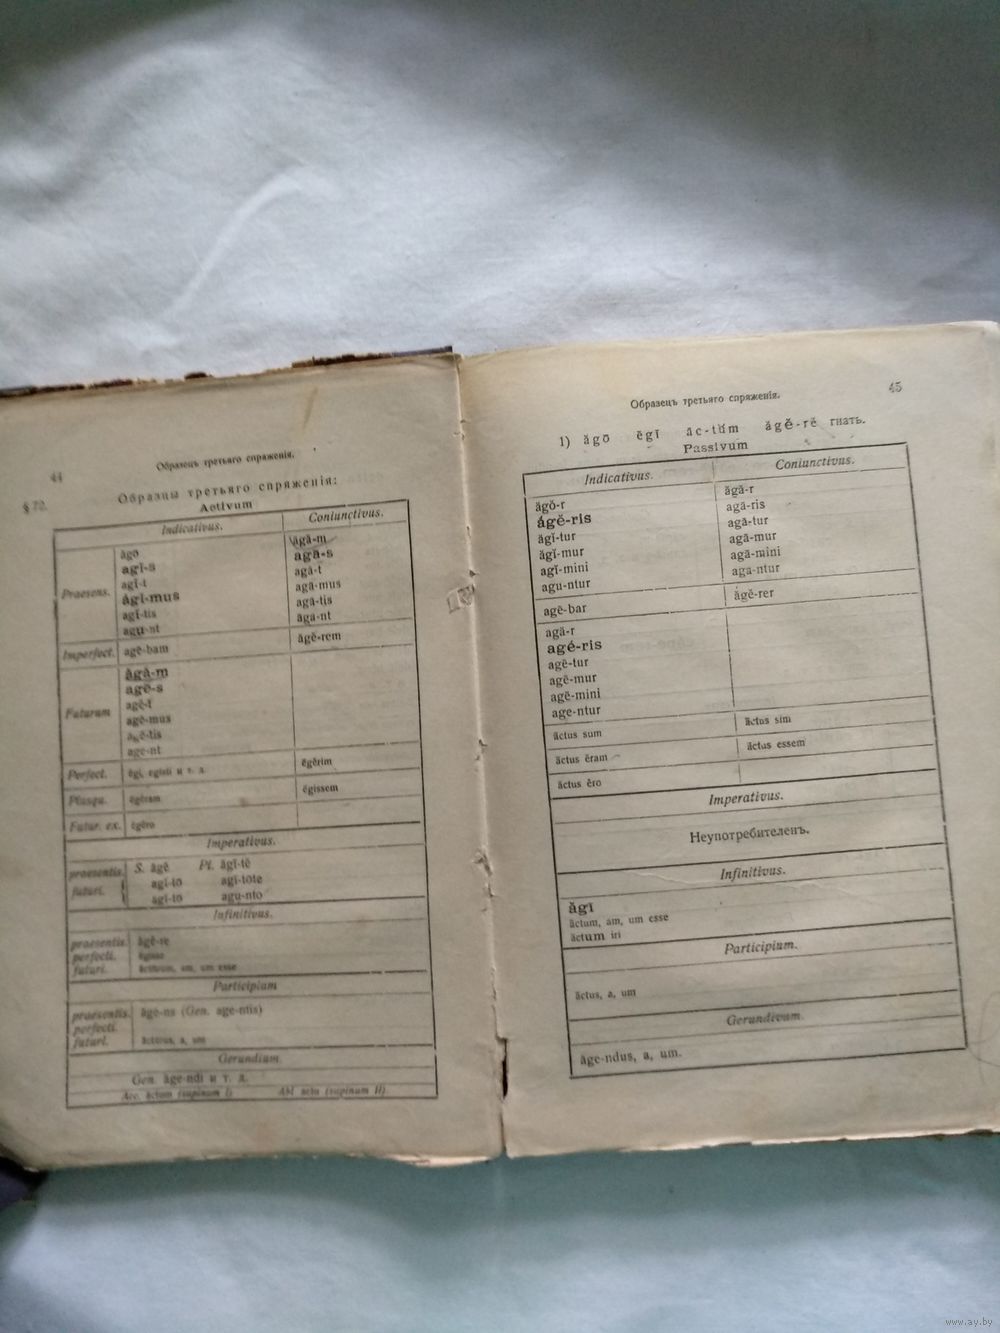 44
Образецъ третьяго спряженія.
§ 72. Образцы третьяго спряженія:
Activum
Indicativus. Coniunctivus.
Praesens. ăgo ăgā-m
agĭ-s agā-s
agĭ-t agā-t
ágĭ-mus agā-mus
agĭ-tis agā-tis
agu-nt aga-nt
Imperfect. agē-bam ăgĕ-rem
Futurum ăgă-m
agē-s
agē-t
agē-mus
agē-tis
age-nt
Perfect. ēgi, egisti и т. д. ēgĕrim
Plusqu. ēgĕram ēgissem
Futur. ex. ēgĕro
Imperativus.
praesentis. S. ăgĕ Pl. ăgĭ-tĕ
futuri. agĭ-to agi-tote
agĭ-to agu-nto
Infinitivus.
praesentis. ăgĕ-re
perfecti. ēgisse
futuri. ācturum, am, um esse
Participium
praesentis. ăgē-ns (Gen. age-ntis)
perfecti.
futuri. ācturus, a, um
Gerundium
Gen. ăge-ndi и т. д.
Acc. āctum (supinum I) Abl actu (supinum II)
Образецъ третьяго спряженія. 45
1) ăgo ēgī āc-tŭm ăgĕ-rĕ гнать.
Passivum
Indicativus. Coniunctivus.
ăgŏ-r ăgă-r
ágĕ-ris agā-ris
ăgĭ-tur agā-tur
ăgĭ-mur agā-mur
agĭ-mini agā-mini
agu-ntur aga-ntur
agē-bar ăgĕ-rer
agă-r
agé-ris
agē-tur
agē-mur
agē-mini
age-ntur
āctus sum āctus sim
āctus ĕram āctus essem
āctus ĕro
Imperativus.
Неупотребителенъ.
Infinitivus.
ăgī
āctum, am, um esse
āctum iri
Participium.
āctus, a, um
Gerundivum.
ăge-ndus, a, um.
www.ay.by